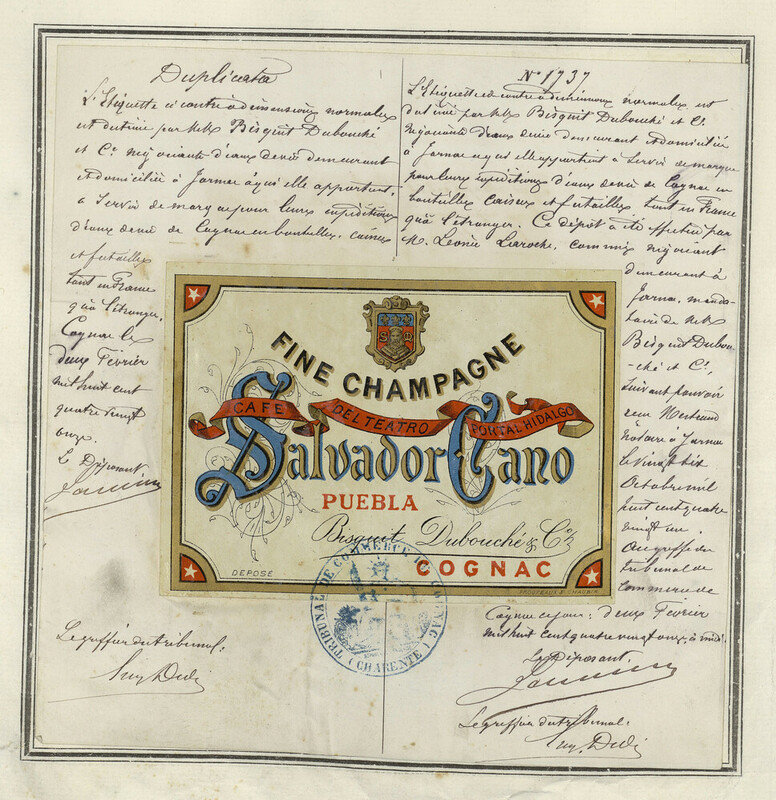 Duplicata
L'Etiquette ci contre a dimensions normales
est destinée par MM. Bisquit Dubouché
et Cie négociants d'eaux de vie demeurant
et domiciliés à Jarnac à qui elle appartient,
à servir de marque pour leurs expéditions
d'eaux de vie de Cognac en bouteilles, caisses
et futailles
tant en France
qu'à l'étranger.
Cognac le
deux Février
mil huit cent
quatre vingt
onze.
Le Déposant
Le greffier du tribunal:
No 1737
L'Etiquette ci contre a dimensions normales est
destinée par MM. Bisquit Dubouché et Cie
négociants d'eaux de vie demeurant et domiciliés
à Jarnac à qui elle appartient à servir de marque
pour leurs expéditions d'eaux de vie de Cognac en
bouteilles caisses et futailles tant en France
qu'à l'étranger. Ce dépôt a été effectué par
M. Leonie Laroche, commis négociant
demeurant à
Jarnac, manda-
taire de MM.
Bisquit Dubou-
ché et Cie,
suivant pouvoir
notaire à Jarnac
le vingt six
Octobre mil
huit cent quatre
vingt un.
Au greffe du
tribunal de
commerce de
Cognac ce jour: deux Février
mil huit cent quatre vingt onze, à midi.
Le Déposant.
Le greffier du tribunal:
FINE CHAMPAGNE
CAFE DEL TEATRO PORTAL HIDALGO
Salvador Cano
PUEBLA
Bisquit Dubouché & Co
COGNAC
DÉPOSÉ
TRIBUNAL DE COMMERCE DE COGNAC
(CHARENTE)